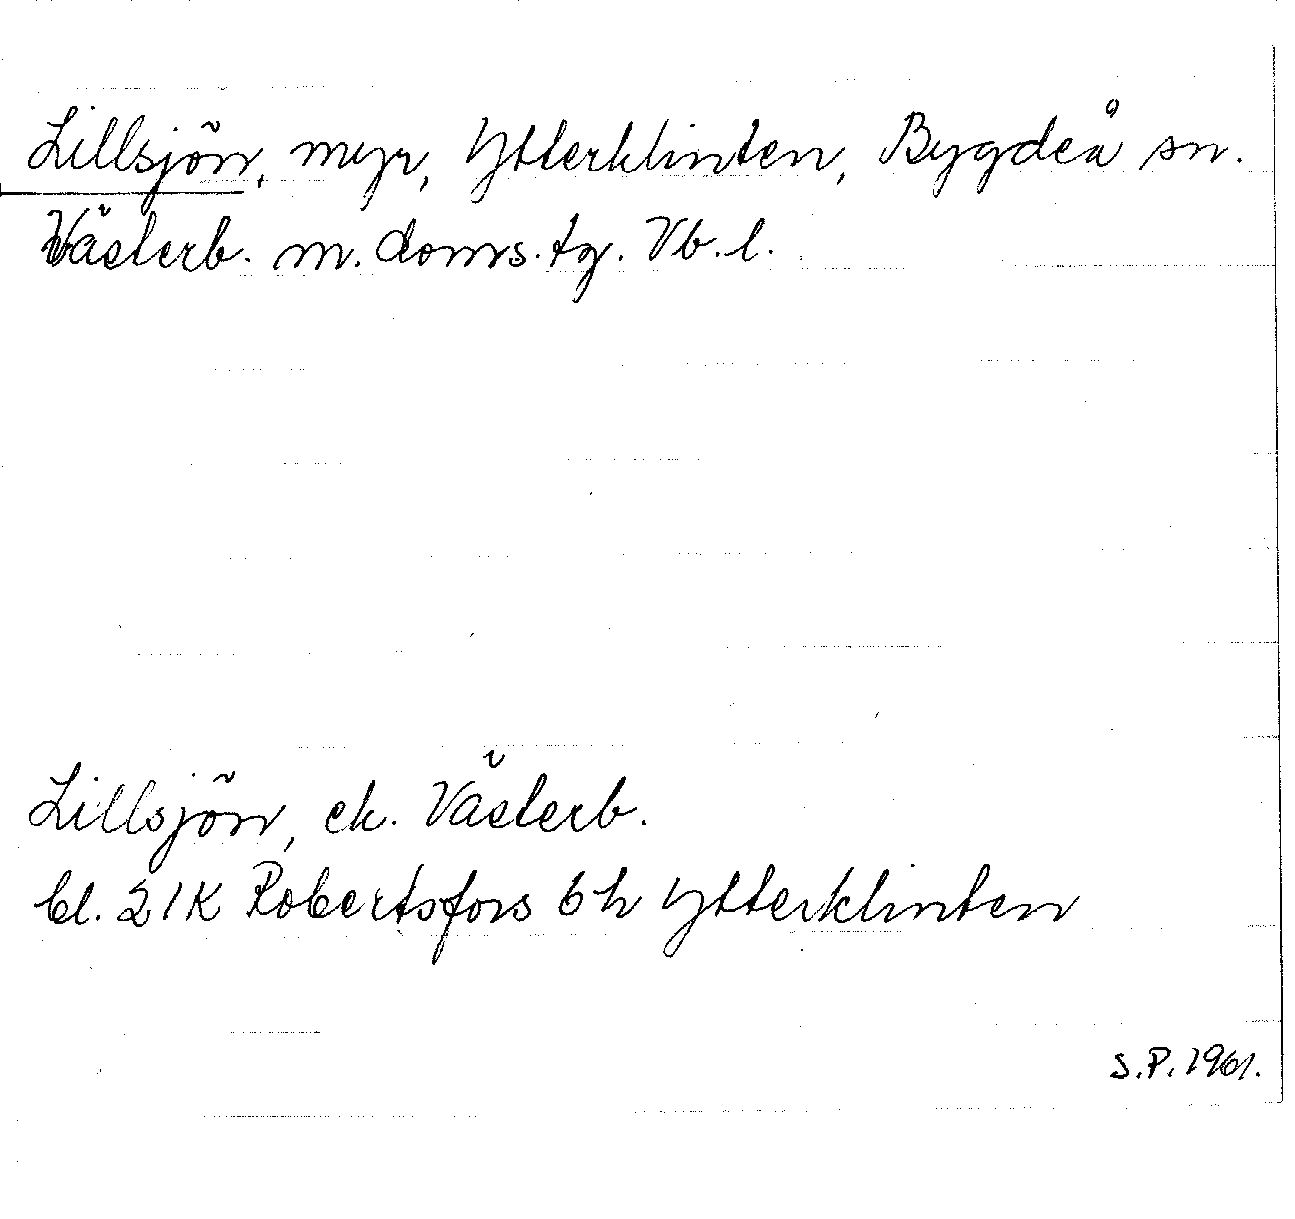 Lillsjön, myr, Ytterklinten, Bygdeå sn.
Västerb. m. doms. tg. Vb. l.
Lillsjön, ek. Västerb.
bl. 21K Robertsfors 6h Ytterklinten
S.P. 1961.